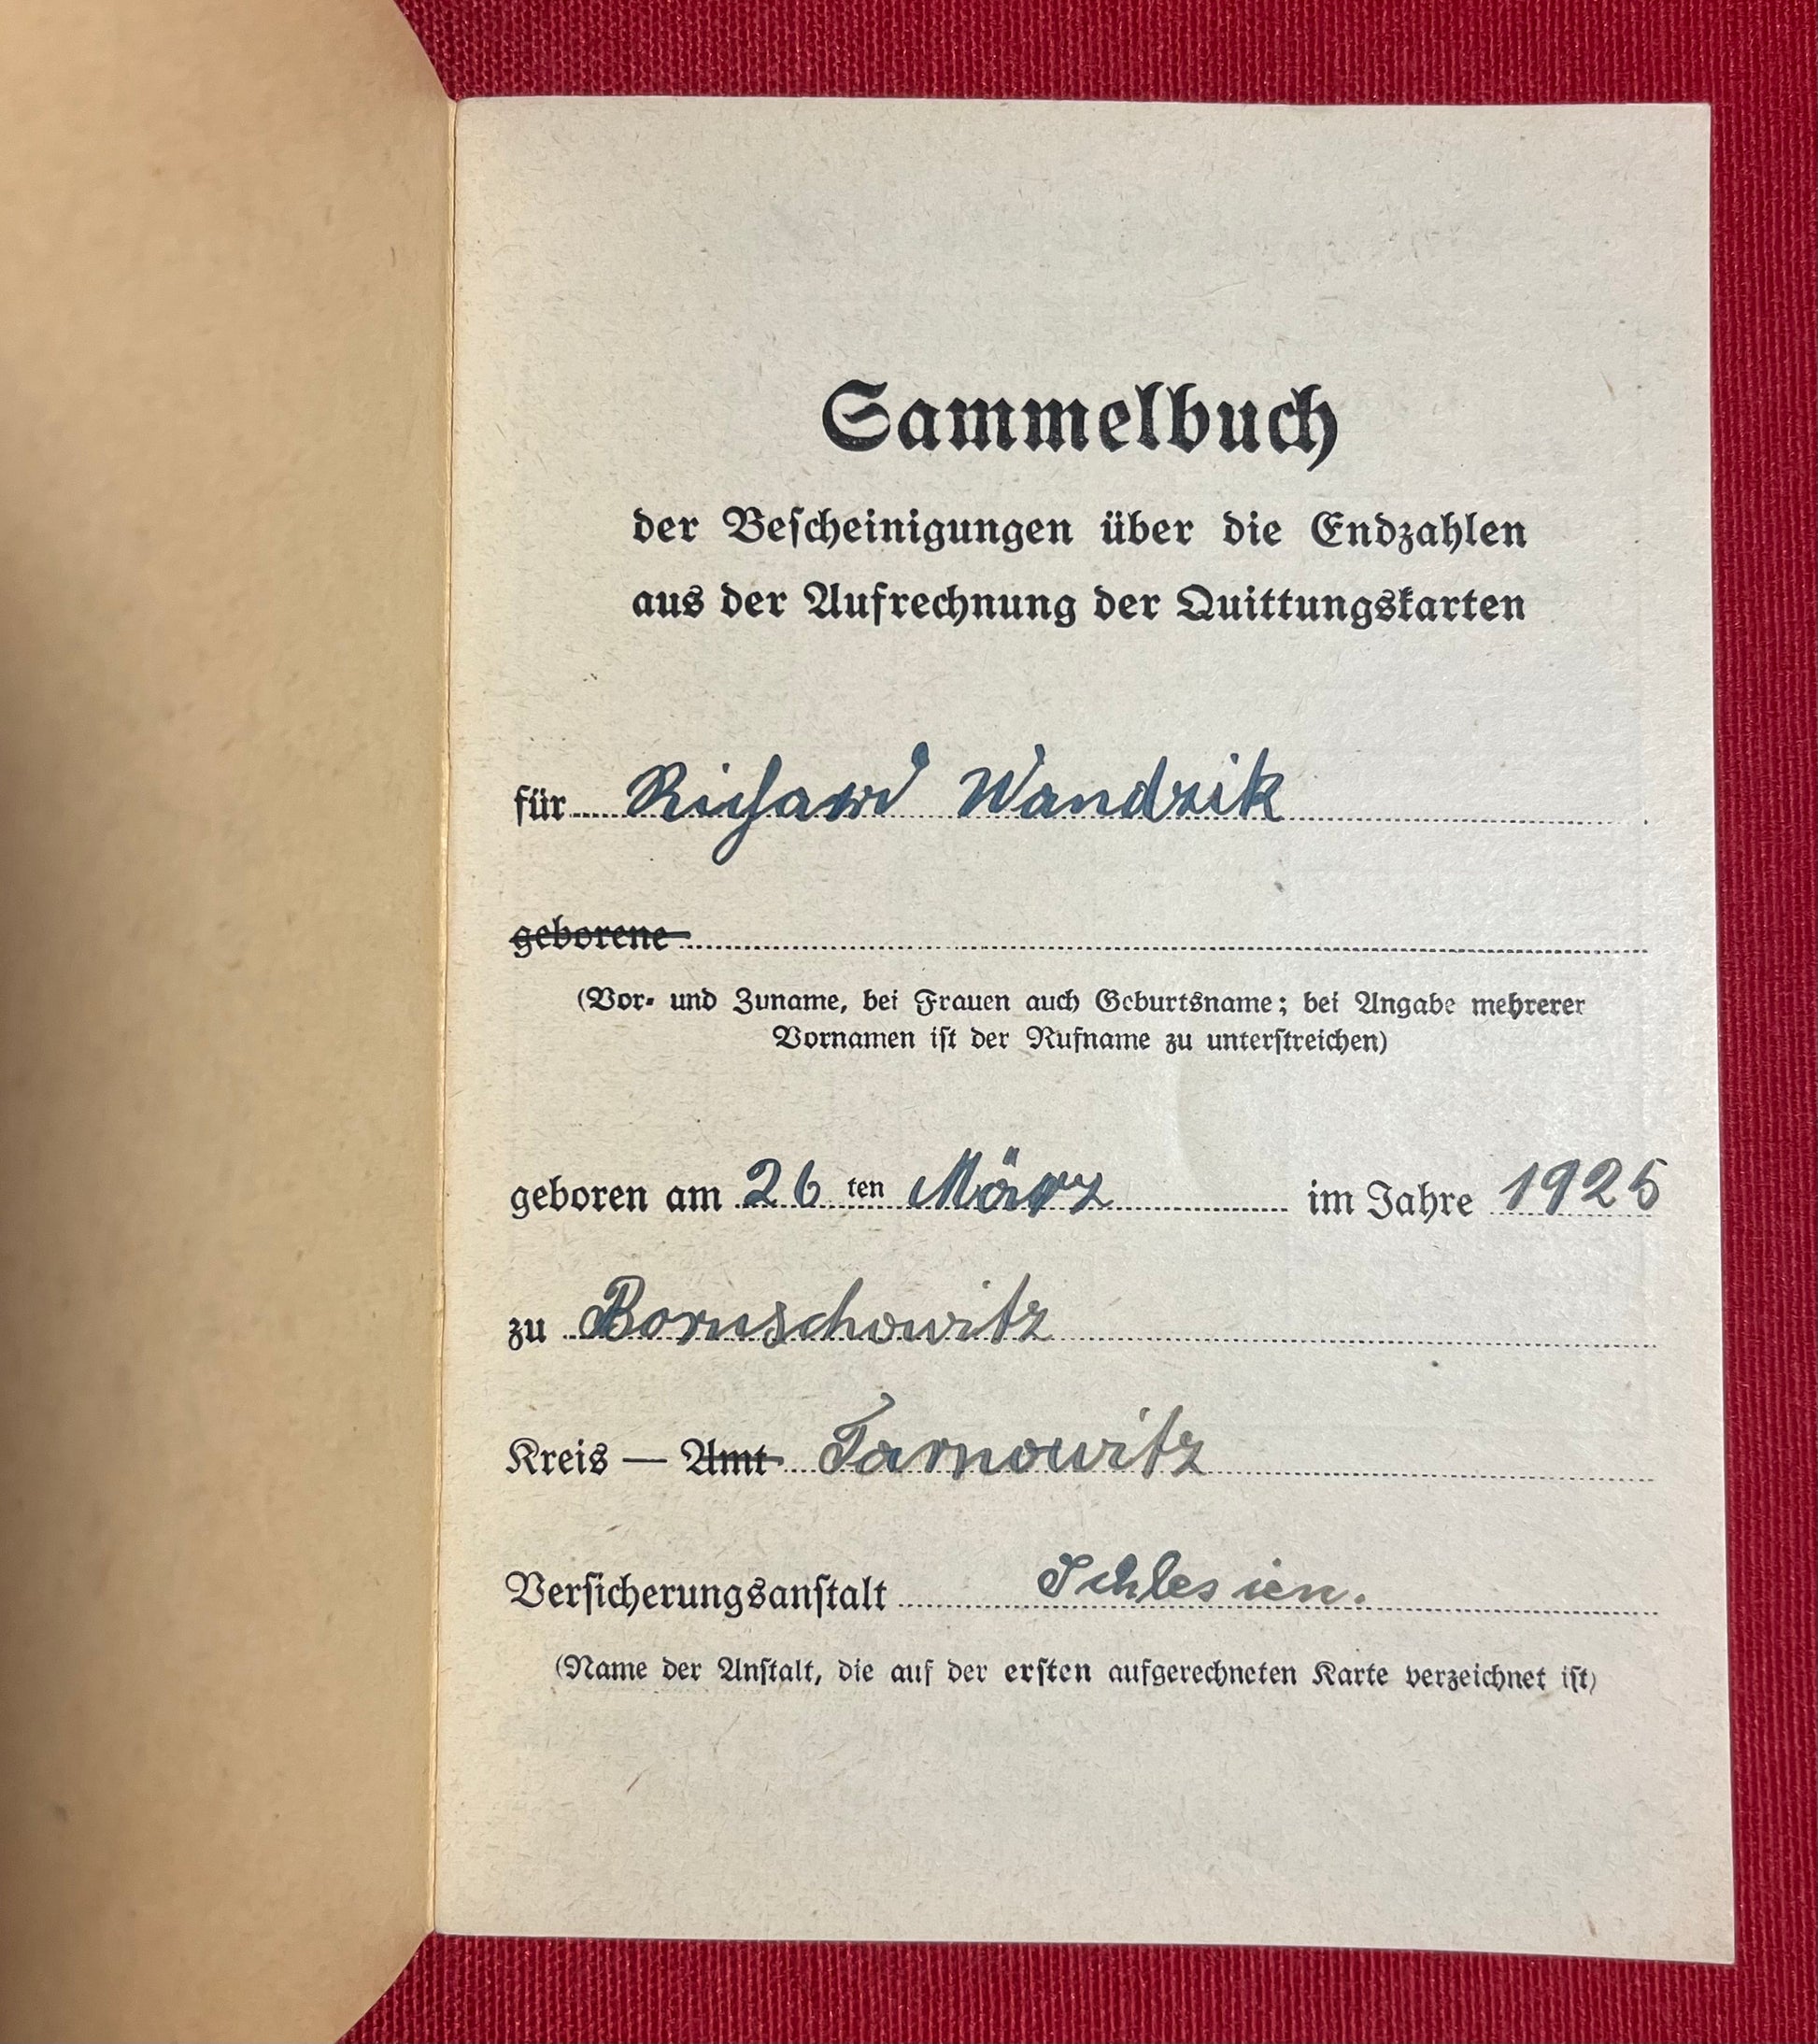 Sammelbuch
der Bescheinigungen über die Endzahlen
aus der Aufrechnung der Quittungskarten
für Richard Wandzik
geborene
(Vor- und Zuname, bei Frauen auch Geburtsname; bei Angabe mehrerer
Vornamen ist der Rufname zu unterstreichen)
geboren am 26 ten März im Jahre 1925
zu Boruschowitz
Kreis — Amt Tarnowitz
Versicherungsanstalt Schlesien.
(Name der Anstalt, die auf der ersten aufgerechneten Karte verzeichnet ist)